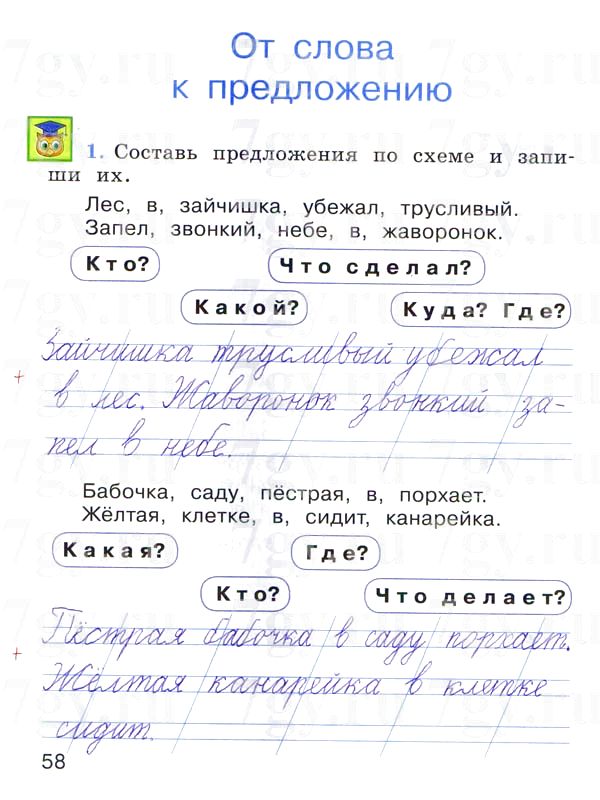 От слова
к предложению
1. Составь предложения по схеме и запи-
ши их.
Лес, в, зайчишка, убежал, трусливый.
Запел, звонкий, небе, в, жаворонок.
Кто? Что сделал?
Какой? Куда? Где?
Зайчишка трусливый убежал
в лес. Жаворонок звонкий за-
пел в небе.
Бабочка, саду, пёстрая, в, порхает.
Жёлтая, клетке, в, сидит, канарейка.
Какая? Где?
Кто? Что делает?
Пёстрая бабочка в саду порхает.
Жёлтая канарейка в клетке
сидит.
58
7gy.ru